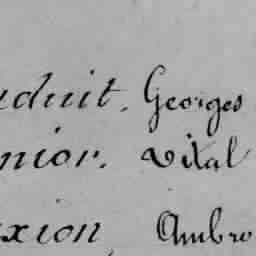 duit. Georges
nior. Vital
xion, Ambro